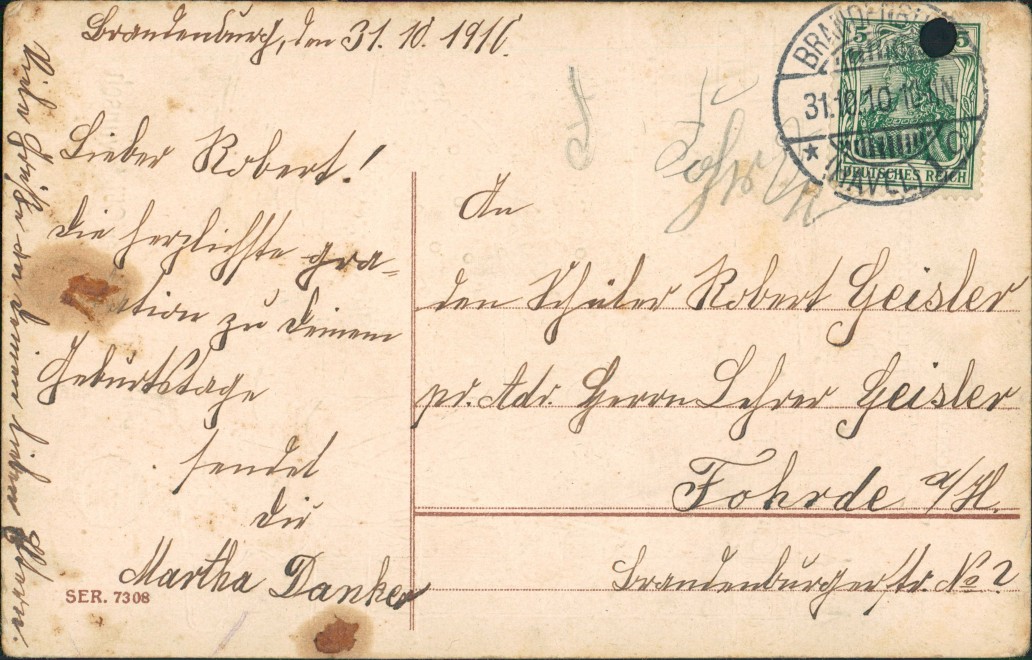 Brandenburg, den 31. 10. 1910.
Lieber Robert!
Die herzlichste Gra-
tion zu Deinem
Geburtstage
sendet
Dir
Martha Danker
Viele Grüße an Deine lieben Eltern.
SER. 7308
BRANDENBURG
31.10.10.
(HAVEL)
5 5
DEUTSCHES REICH
An
den Schüler Robert Geisler
pr. Adr. Herrn Lehrer Geisler
Fohrde a/H.
Brandenburgerstr. No 2